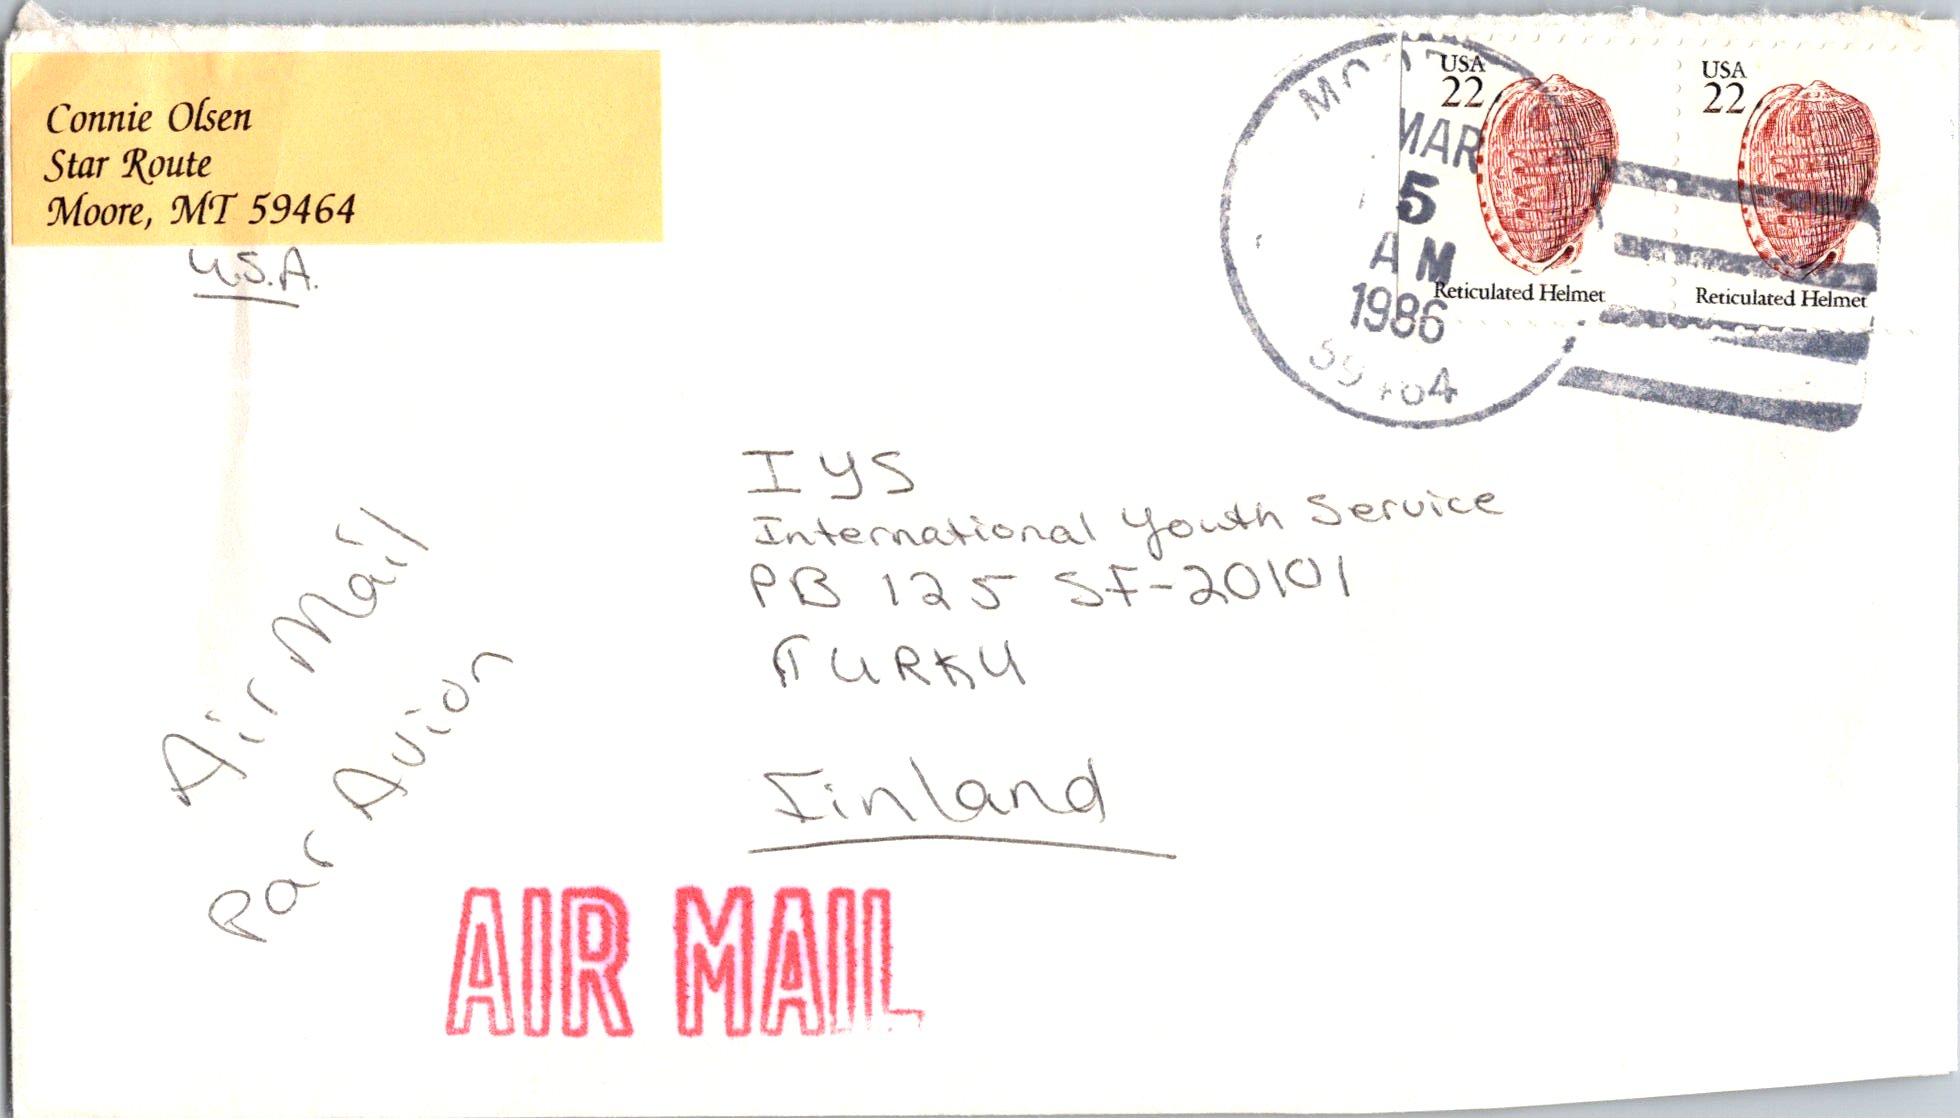 Connie Olsen
Star Route
Moore, MT 59464
U.S.A.
USA
22
Reticulated Helmet
USA
22
Reticulated Helmet
MAR
5
AM
1986
IYS
International Youth Service
PB 125 SF-20101
TURKU
Finland
Air Mail
Par Avion
AIR MAIL